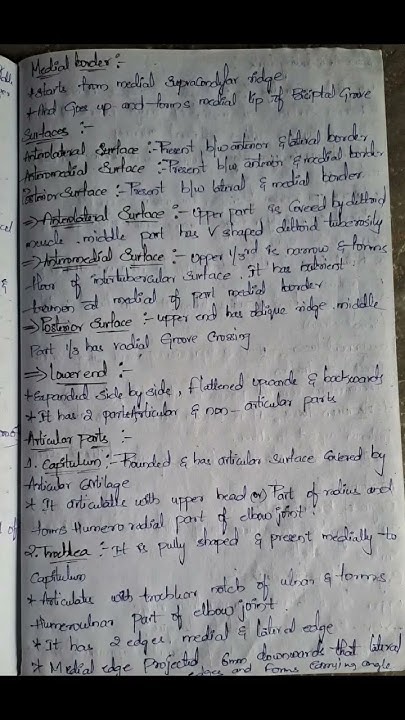 Medial border :-
*starts from medial supracondylar ridge
*And Goes up and forms medial lip of Bicipital Grove
Surfaces :-
Anterolateral Surface :- Present b/w anterior & lateral border
Anteromedial Surface :- Present b/w anterior & medial border
Posterior Surface :- Present b/w lateral & medial border
=> Anterolateral Surface :- Upper part is covered by deltoid
muscle. middle part has V shaped deltoid tuberosity
=> Anteromedial Surface :- Upper 1/3rd is narrow & forms
floor of intertubercular surface. It has nutrient
at medial of part medial border
=> Posterior Surface :- upper end has oblique ridge. middle
Part 1/3 has radial Groove Crossing
=> Lower end :-
*Expanded side by side, flattened upwards & backwards
*It has 2 parts Articular & non-articular parts
Articular parts :-
1. Capitulum :- Rounded & has articular surface covered by
Articular Cartilage
* It articulates with upper head (or) Part of radius and
forms Humero radial part of elbow joint.
2. Trochlea :- It is pully shaped & present medially to
Capitulum
* Articulates with trochlear notch of ulnar & forms
Humeroulnar part of elbow joint
* It has 2 edges medial & lateral edge
* Medial edge projected 6mm downwards that lateral
edges and forms carrying angle